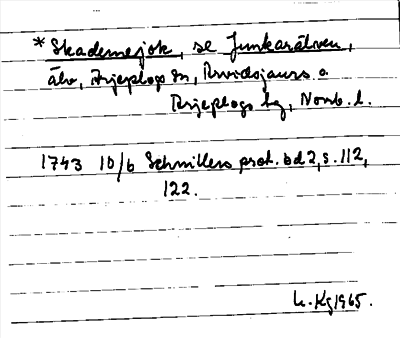 * Skademejok, se Junkarälven,
älv, Arjeplogs sn, Arvidsjaurs o.
Arjeplogs tg, Norrb. l.
1743 10/6 Schnitlers prot. bd 2, s. 112,
122.
L. Kg 1965.